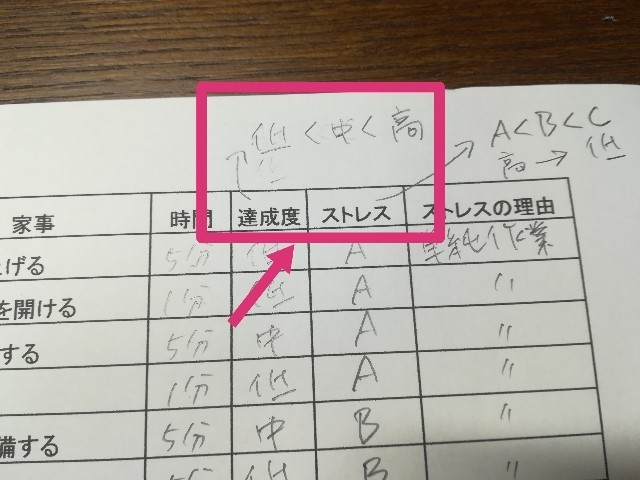 低<中<高
A<B<C
高→低
家事 時間 達成度 ストレス ストレスの理由
上げる 5分 低 A 単純作業
を開ける 1分 低 A 〃
する 5分 中 A 〃
1分 低 A 〃
備する 5分 中 B 〃
5分 低 B 〃